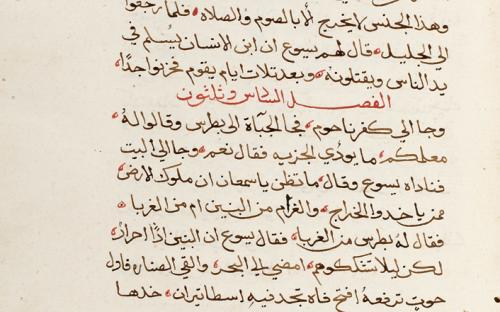 وهذا الجنس لا يخرج الا بالصوم والصلاه فلما رجعوا
الي الجليل قال لهم يسوع ان ابن الانسان يسلم في
يد الناس ويقتلونه وبعد تلات ايام يقوم فحزنوا جدا
الفصل السادس وثلثون
وجا الي كفرناحوم فجا الجباة الي بطرس وقالوا له
معلمكم ما يودي الجزيه فقال نعم وجا الي البيت
فناداه يسوع وقال ما تظن يا سمعان ان ملوك الارض
ممن ياخدوا الخراج والغرام من البنين ام من الغربا
فقال له بطرس من الغربا فقال يسوع ان البنين اذا احرار
لكن ليلا نشككهم امضي الي البحر والقي الصناره فاول
حوت ترفعه افتح فاه تجد فيه اسطاتيران خدها